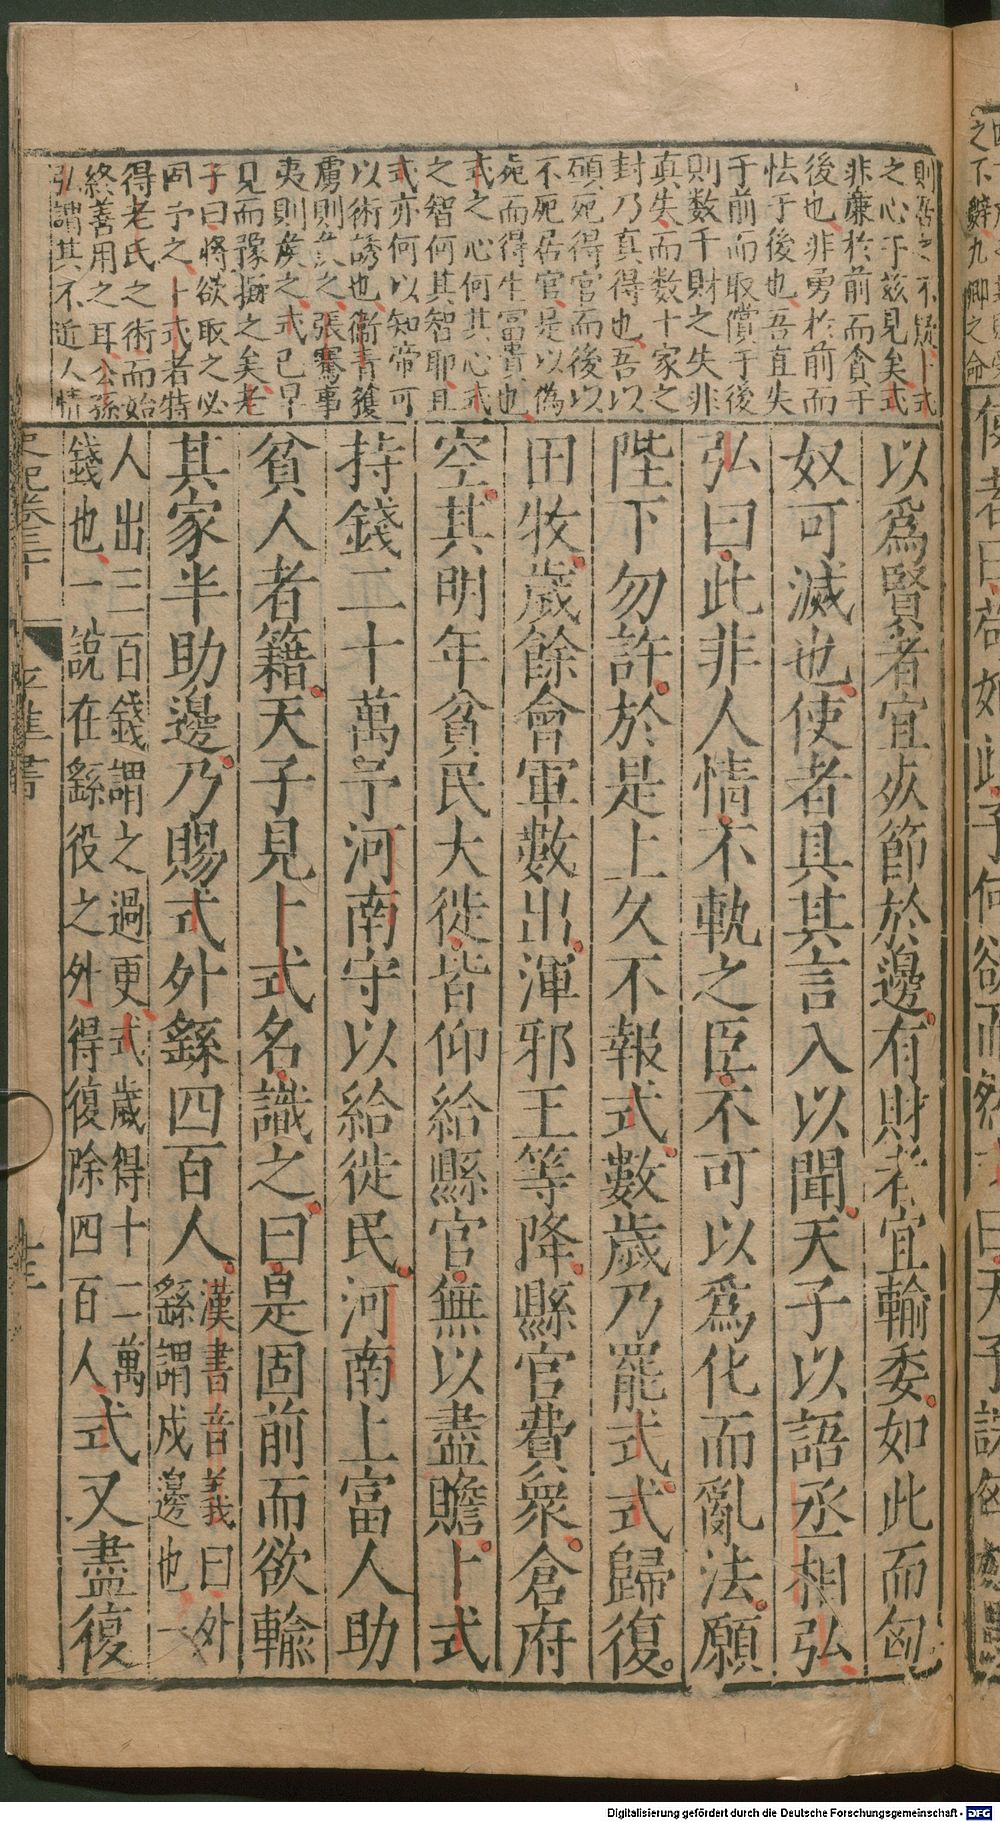 則吾之不疑卜式
之心于茲見矣式
非廉於前而貪于
後也非勇於前而
怯于後也吾直失
于前而取償于後
則数千財之失非
真失而数十家之
封乃真得也吾以
頭宛得官而後以
不死居官是以偽
宛而得生冨貴也
式之心何其心式
之智何其智耶且
式亦何以知帝可
以術誘也衛青獲
虜則之張騫事
夷則矦之式已早
見而豫揣之矣老
子曰將欲取之必
固予之卜式者特
得老氏之術而始
終善用之耳公孫
弘謂其不近人情
以爲賢者宜死節於邊有財者宜輸委如此而匈
奴可滅也使者具其言入以聞天子以語丞相弘
弘曰此非人情不軌之臣不可以爲化而亂法願
陛下勿許於是上久不報式數歲乃罷式式歸復
田牧歲餘會軍數出渾邪王等降縣官費衆倉府
空其明年貧民大徙皆仰給縣官無以盡贍卜式
持錢二十萬予河南守以給徙民河南上富人助
貧人者籍天子見卜式名識之曰是固前而欲輸
其家半助邊乃賜式外繇四百人漢書音義曰外
繇謂戍邊也一
人出三百錢謂之過更式歲得十二萬
錢也一說在繇役之外得復除四百人式又盡復
史記卷三十 平準書
Digitalisierung gefördert durch die Deutsche Forschungsgemeinschaft - DFG